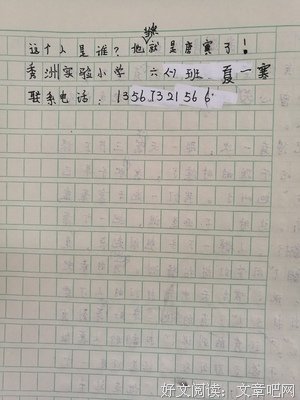 这个人是谁？他当然就是唐寅了！
秀洲实验小学 六(1)班 夏一寒
联系电话：13567321566
好文阅读：文章吧网